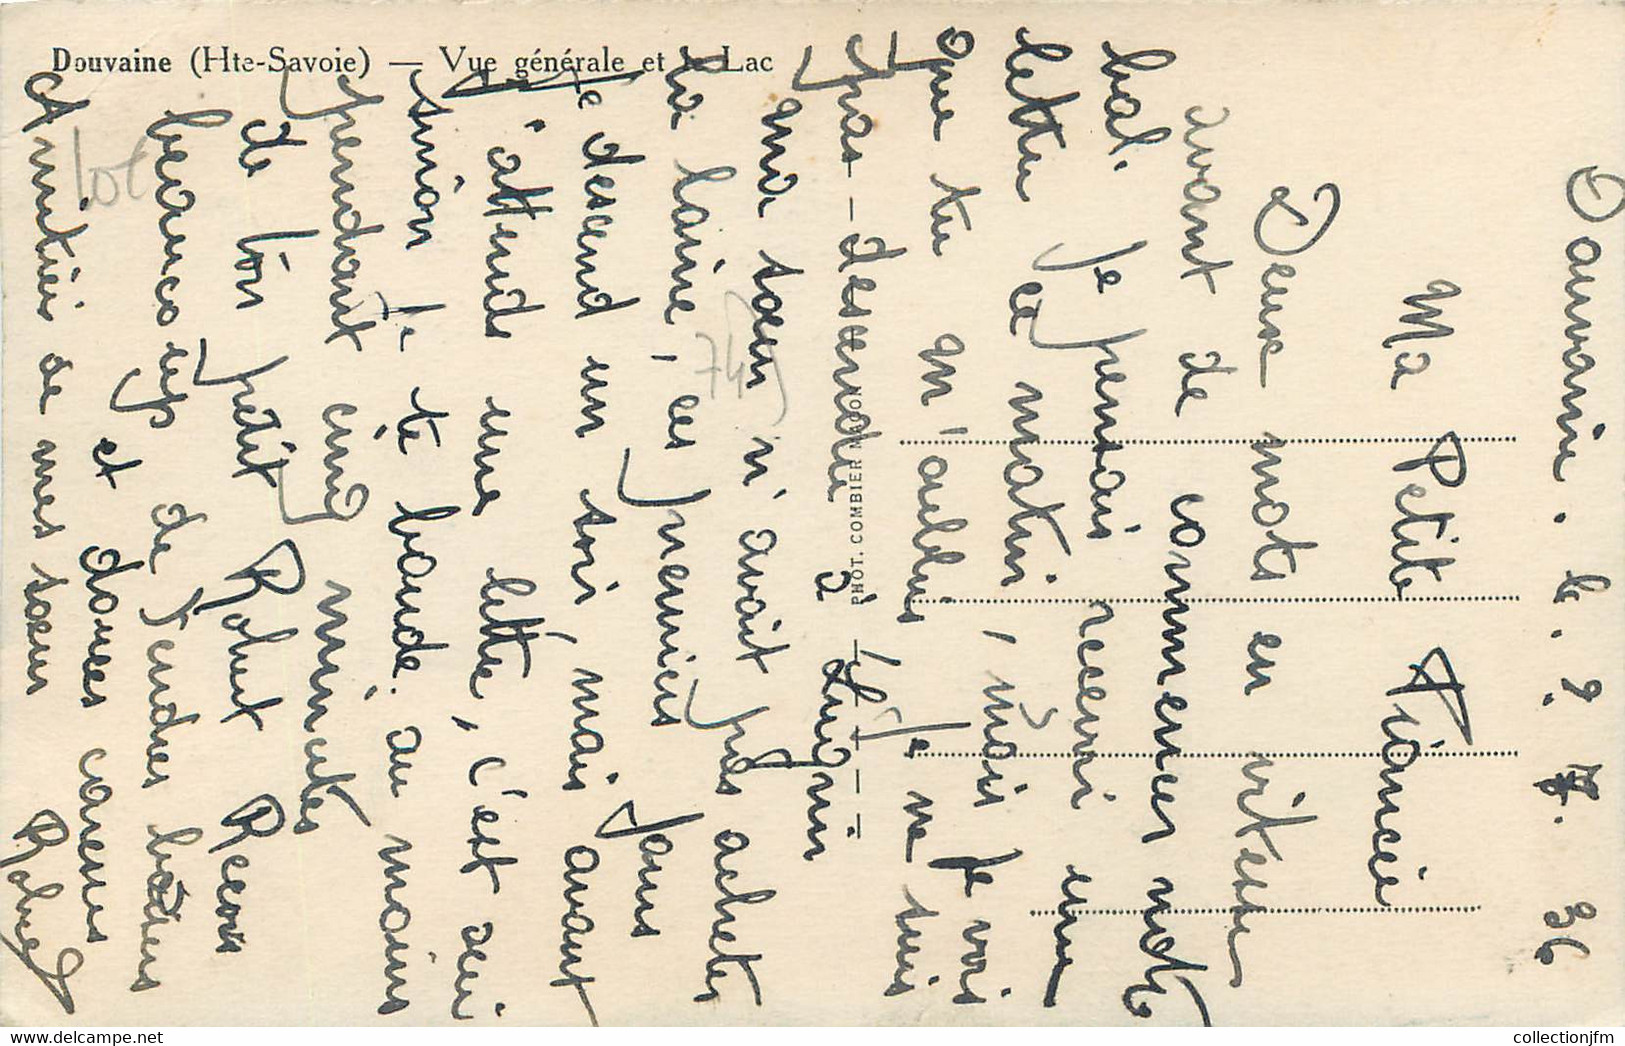 Douvaine (Hte-Savoie) — Vue générale et le Lac
Douvaine. le. 2. 7. 36
Ma Petite Fiancée
Deux mots en vitesse
avant de commencer notre
bal. je pensais recevoir une
lettre ce matin, mais je vois
que tu m'oublis je ne suis
pas - descendu à Lugrin
ma sœur n'avait pas acheter
la laine, ces premiers jours
je descend un soir, mais avant
j'attends une lettre, c'est sur
sinon je te boude. au moins
pendant cinq minutes
de ton petit Robert Recois
beaucoup de tendres baisers
et douces caresses
Amitiés de mes sœurs
Robert
PHOT. COMBIER MACON
lot
collectionjfm